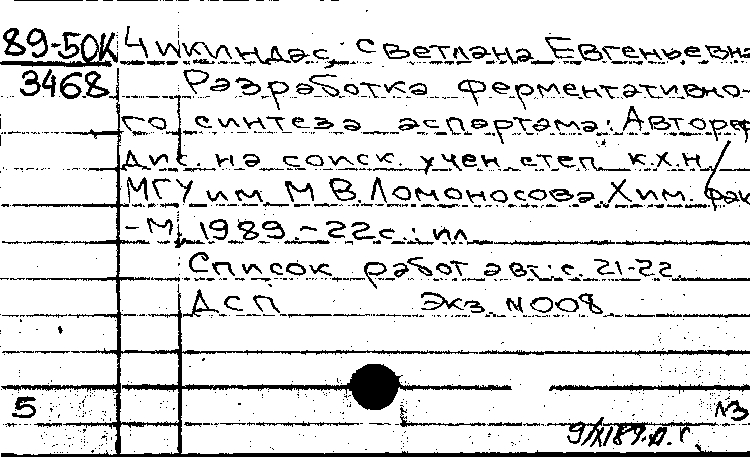 89-50К Чикиндас, Светлана Евгеньевна
3468 Разработка ферментативно-
го синтеза аспартама: Автореф
дис. на соиск. учен. степ. к.х.н. /
МГУ им. М.В.Ломоносова. Хим. фак
- М., 1989. - 22с.: ил
Список работ авт.: с. 21-22.
ДСП Экз. №008
5